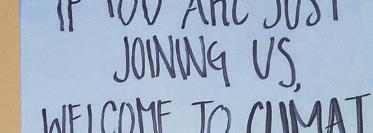 IF YOU ARE JUST
JOINING US,
WELCOME TO CLIMAT